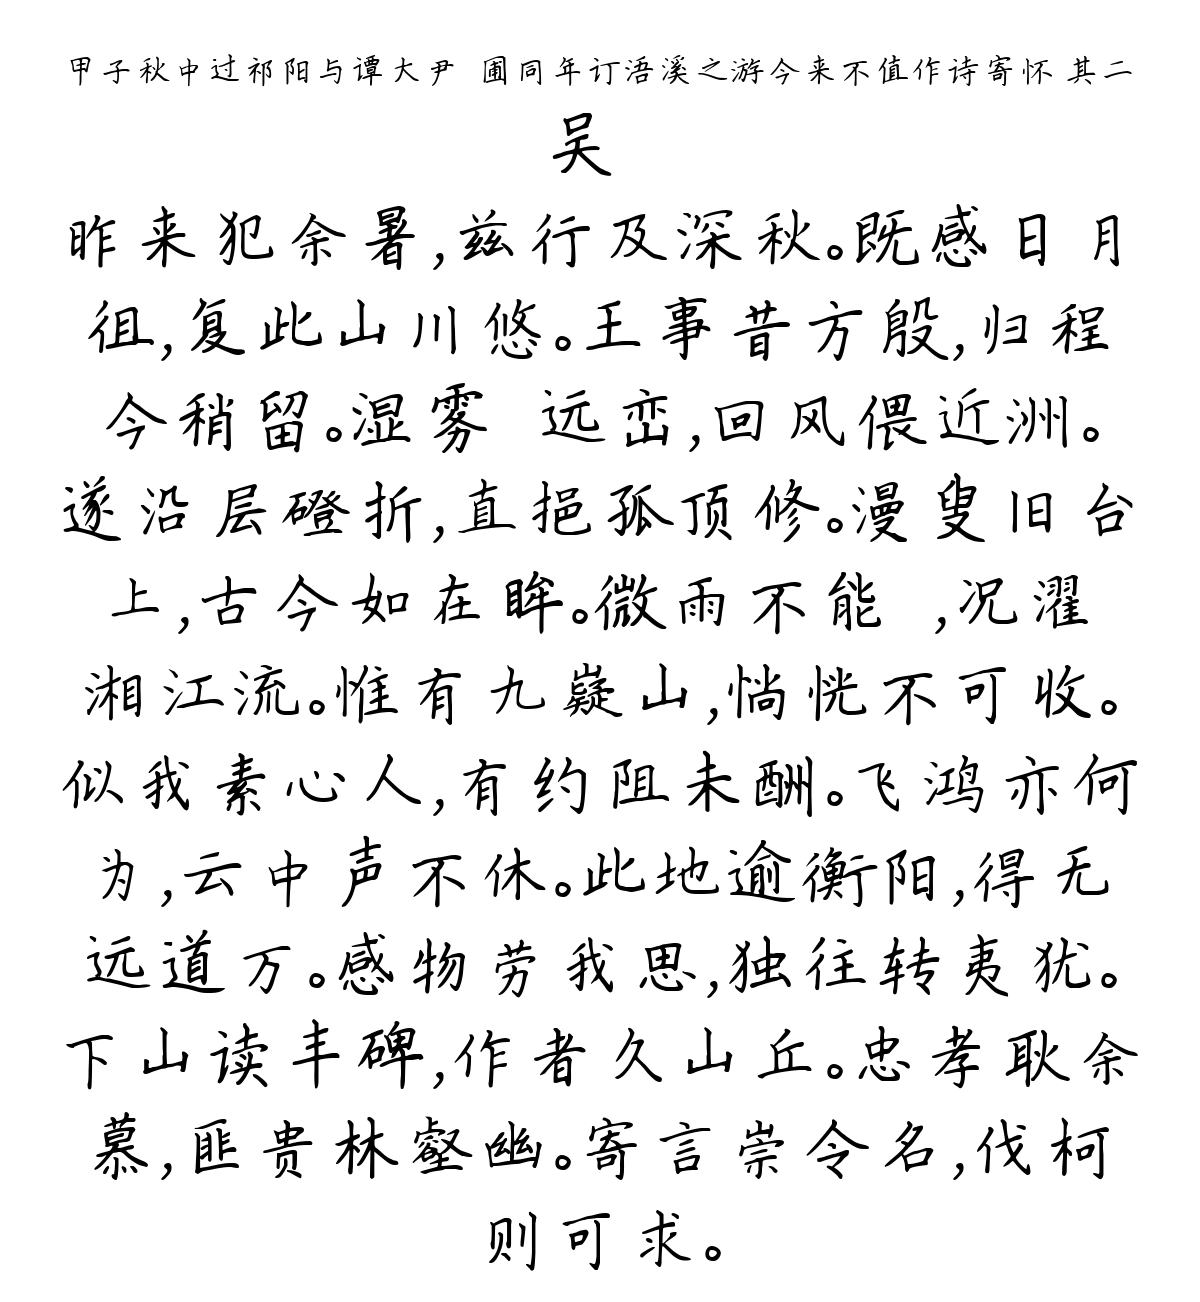 甲子秋中过祁阳与谭大尹 圃同年订浯溪之游今来不值作诗寄怀 其二
吴
昨来犯余暑,兹行及深秋。既感日月
徂,复此山川悠。王事昔方殷,归程
今稍留。湿雾 远峦,回风偎近洲。
遂沿层磴折,直挹孤顶修。漫叟旧台
上,古今如在眸。微雨不能 ,况濯
湘江流。惟有九嶷山,惝恍不可收。
似我素心人,有约阻未酬。飞鸿亦何
为,云中声不休。此地逾衡阳,得无
远道万。感物劳我思,独往转夷犹。
下山读丰碑,作者久山丘。忠孝耿余
慕,匪贵林壑幽。寄言崇令名,伐柯
则可求。